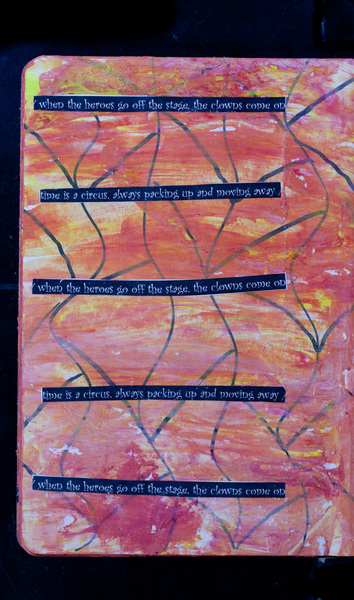 when the heroes go off the stage, the clowns come on
time is a circus, always packing up and moving away
when the heroes go off the stage, the clowns come on
time is a circus, always packing up and moving away
when the heroes go off the stage, the clowns come on